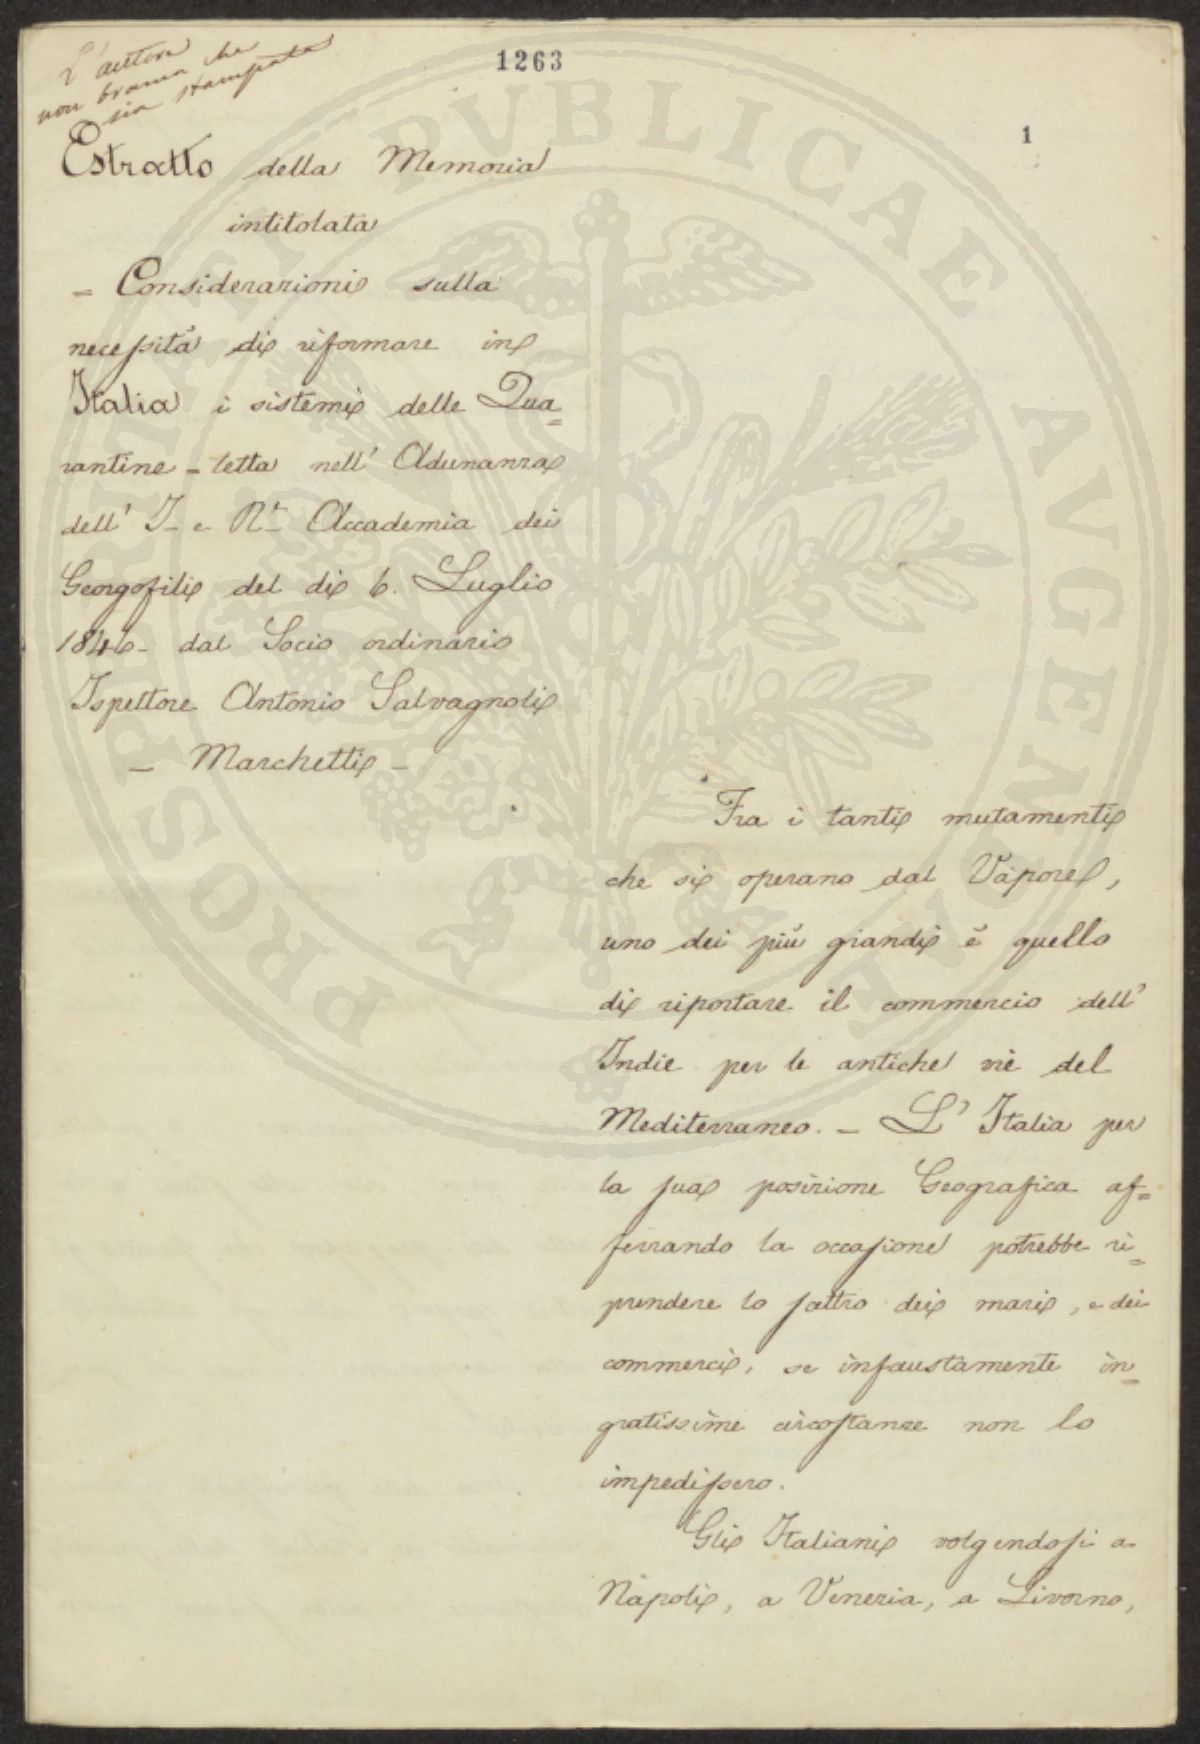 L'autore
non brama che
sia stampata
1263
1
Estratto della Memoria
intitolata
- Considerazioni sulla
necessità di riformare in
Italia i sistemi delle Qua=
rantine - letta nell' Adunanza
dell' I. e R.e Accademia dei
Georgofili del dì 6. Luglio
1846 - dal Socio ordinario
Ispettore Antonio Salvagnoli
- Marchetti -
Fra i tanti mutamenti
che si operano dal Vapore,
uno dei più grandi è quello
di riportare il commercio dell'
Indie per le antiche vie del
Mediterraneo. - L' Italia per
la sua posizione Geografica af=
ferrando la occasione potrebbe ri=
prendere lo scettro dei mari, e dei
commerci, se infaustamente in=
gratissime circostanze non lo
impedissero.
Gli Italiani volgendosi a
Napoli, a Venezia, a Livorno,
PROSPERITATI PVBLICAE AVGENDAE